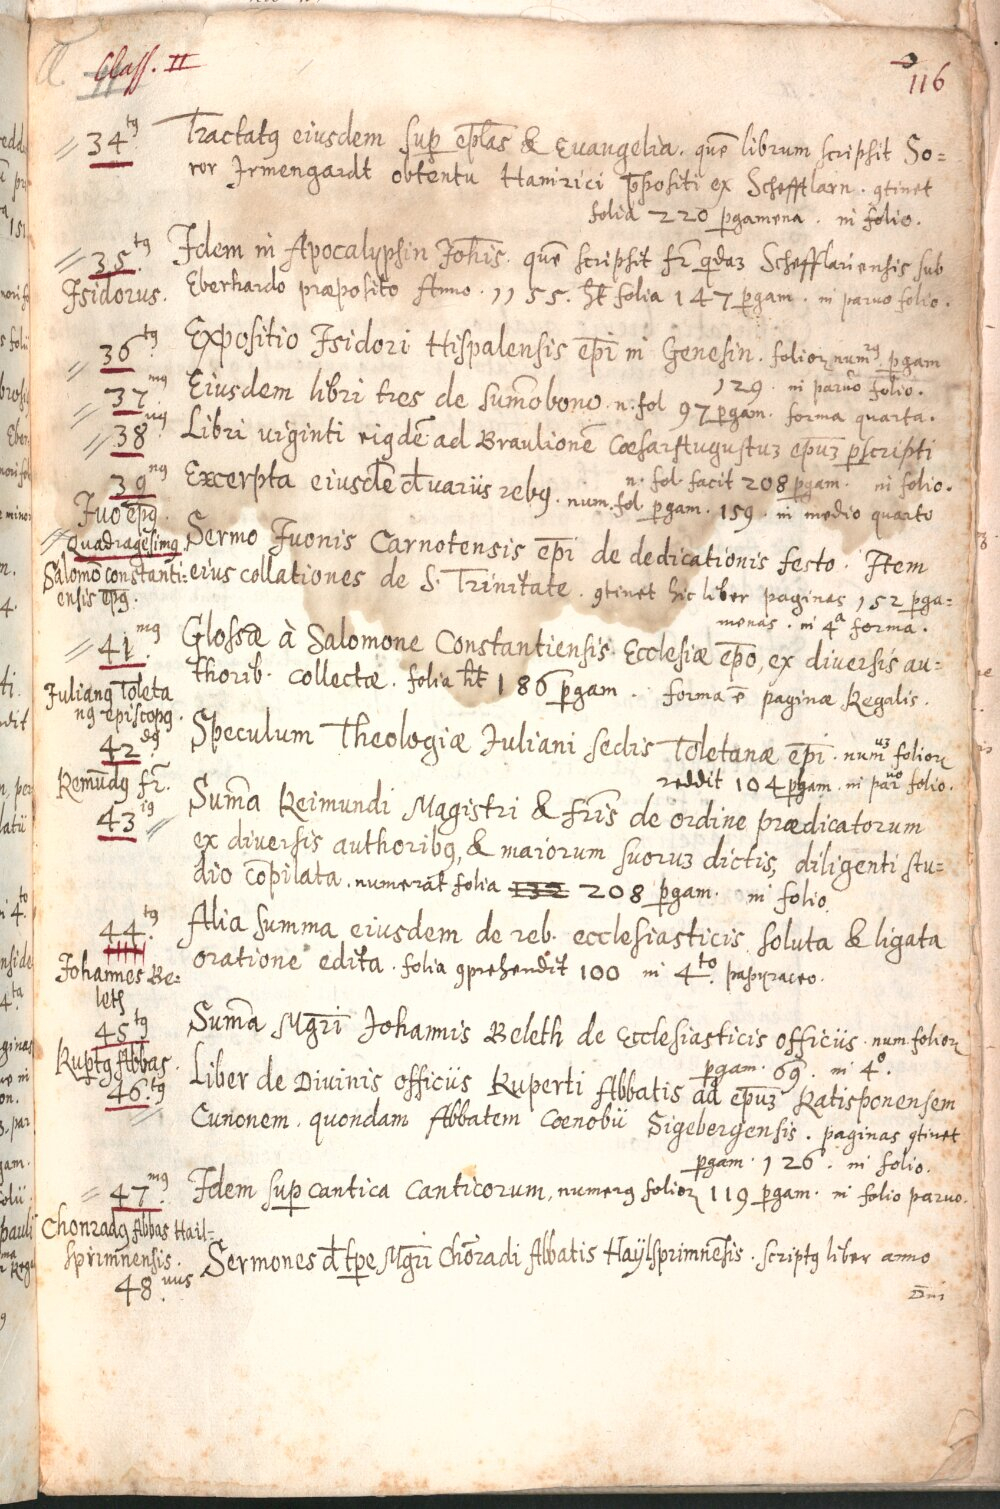 Class. II
116
34tꝰ Tractatꝰ eiusdem sup ep̄las & Euangelia. quē librum scripsit So=
ror Irmengardt obtentu Hainrici p̄positi ex Schefftlarn. ꝯtinet
folia 220 pgamena. in folio.
35.tꝰ Idem in Apocalypsin Joh̄is. quē scripsit fr̄ qdaꝫ Schefftlariensis sub
Isidorus. Eberhardo præposito Anno. 1155. h̄t folia 147 pgam. in paruo folio.
36tꝰ Expositio Isidori Hispalensis ep̄i in Genesin. folioꝝ num9 pgam
129. in paruo folio.
37.mꝰ Eiusdem libri tres de sum̄obono. n. fol 97 pgam. forma quarta.
38.uꝰ Libri uiginti eigdē ad Braulionē CæsarAugustuꝫ epuꝫ pscripti
n. fol. facit 208 pgam. in folio.
39nꝰ Excerpta eiusdē d̄ uariis rebꝰ. num. fol pgam. 159. in medio quarto
Iuo ep̄ꝰ.
Quadragesimꝰ. Sermo Iuonis Carnotensis ep̄i de dedicationis festo. Item
Salomō constanti= eius collationes de S. Trinitate. ꝯtinet hic liber paginas 152 pga=
ensis ep̄ꝰ. menas. in 4a forma.
41.mꝰ Glossæ à Salomone Constantiensis Ecclesiæ ep̄o, ex diversis au=
thorib. collectæ. folia h̄t 186 pgam. forma ē paginæ Regalis.
Iulianꝰ Toleta
nꝰ episcopꝰ.
42.dꝰ Speculum Theologiæ Iuliani sedis Toletanæ ep̄i. numuꝫ folioꝝ
reddit 104 pgam. in paruo folio.
Remūdꝰ fr̄.
43iꝰ Sum̄a Reimundi Magistri & fr̄is de ordine prædicatorum
ex diversis authoribꝰ, & maiorum suoruꝫ dictis, diligenti stu=
dio cōpilata. numerat folia 132 208 pgam. in folio.
44.tꝰ Alia summa eiusdem de reb. ecclesiasticis soluta & ligata
oratione edita. folia ꝯprehendit 100 in 4.to papyraceo.
Johannes Be=
leth
45tꝰ Sum̄a Mgr̄i Johannis Beleth de Ecclesiasticis officiis. num. folioꝝ
pgam. 69. in 4o.
Ruptꝰ Abbas.
46.tꝰ Liber de Divinis officiis Ruperti Abbatis ad epuꝫ Ratisponensem
Cunonem. quondam Abbatem Cœnobii Sigebergensis. paginas ꝯtinet
pgam. 126. in folio.
47.mꝰ Idem sup cantica canticorum. numerꝰ folioꝝ 119 pgam. in folio paruo.
Chonradꝰ Abbas Hail-
sprim̄nensis.
48.uus Sermones d̄ tpe Mgr̄i Chōradi Abbatis Haylsprimnēsis. scriptꝰ liber anno
Dn̄i